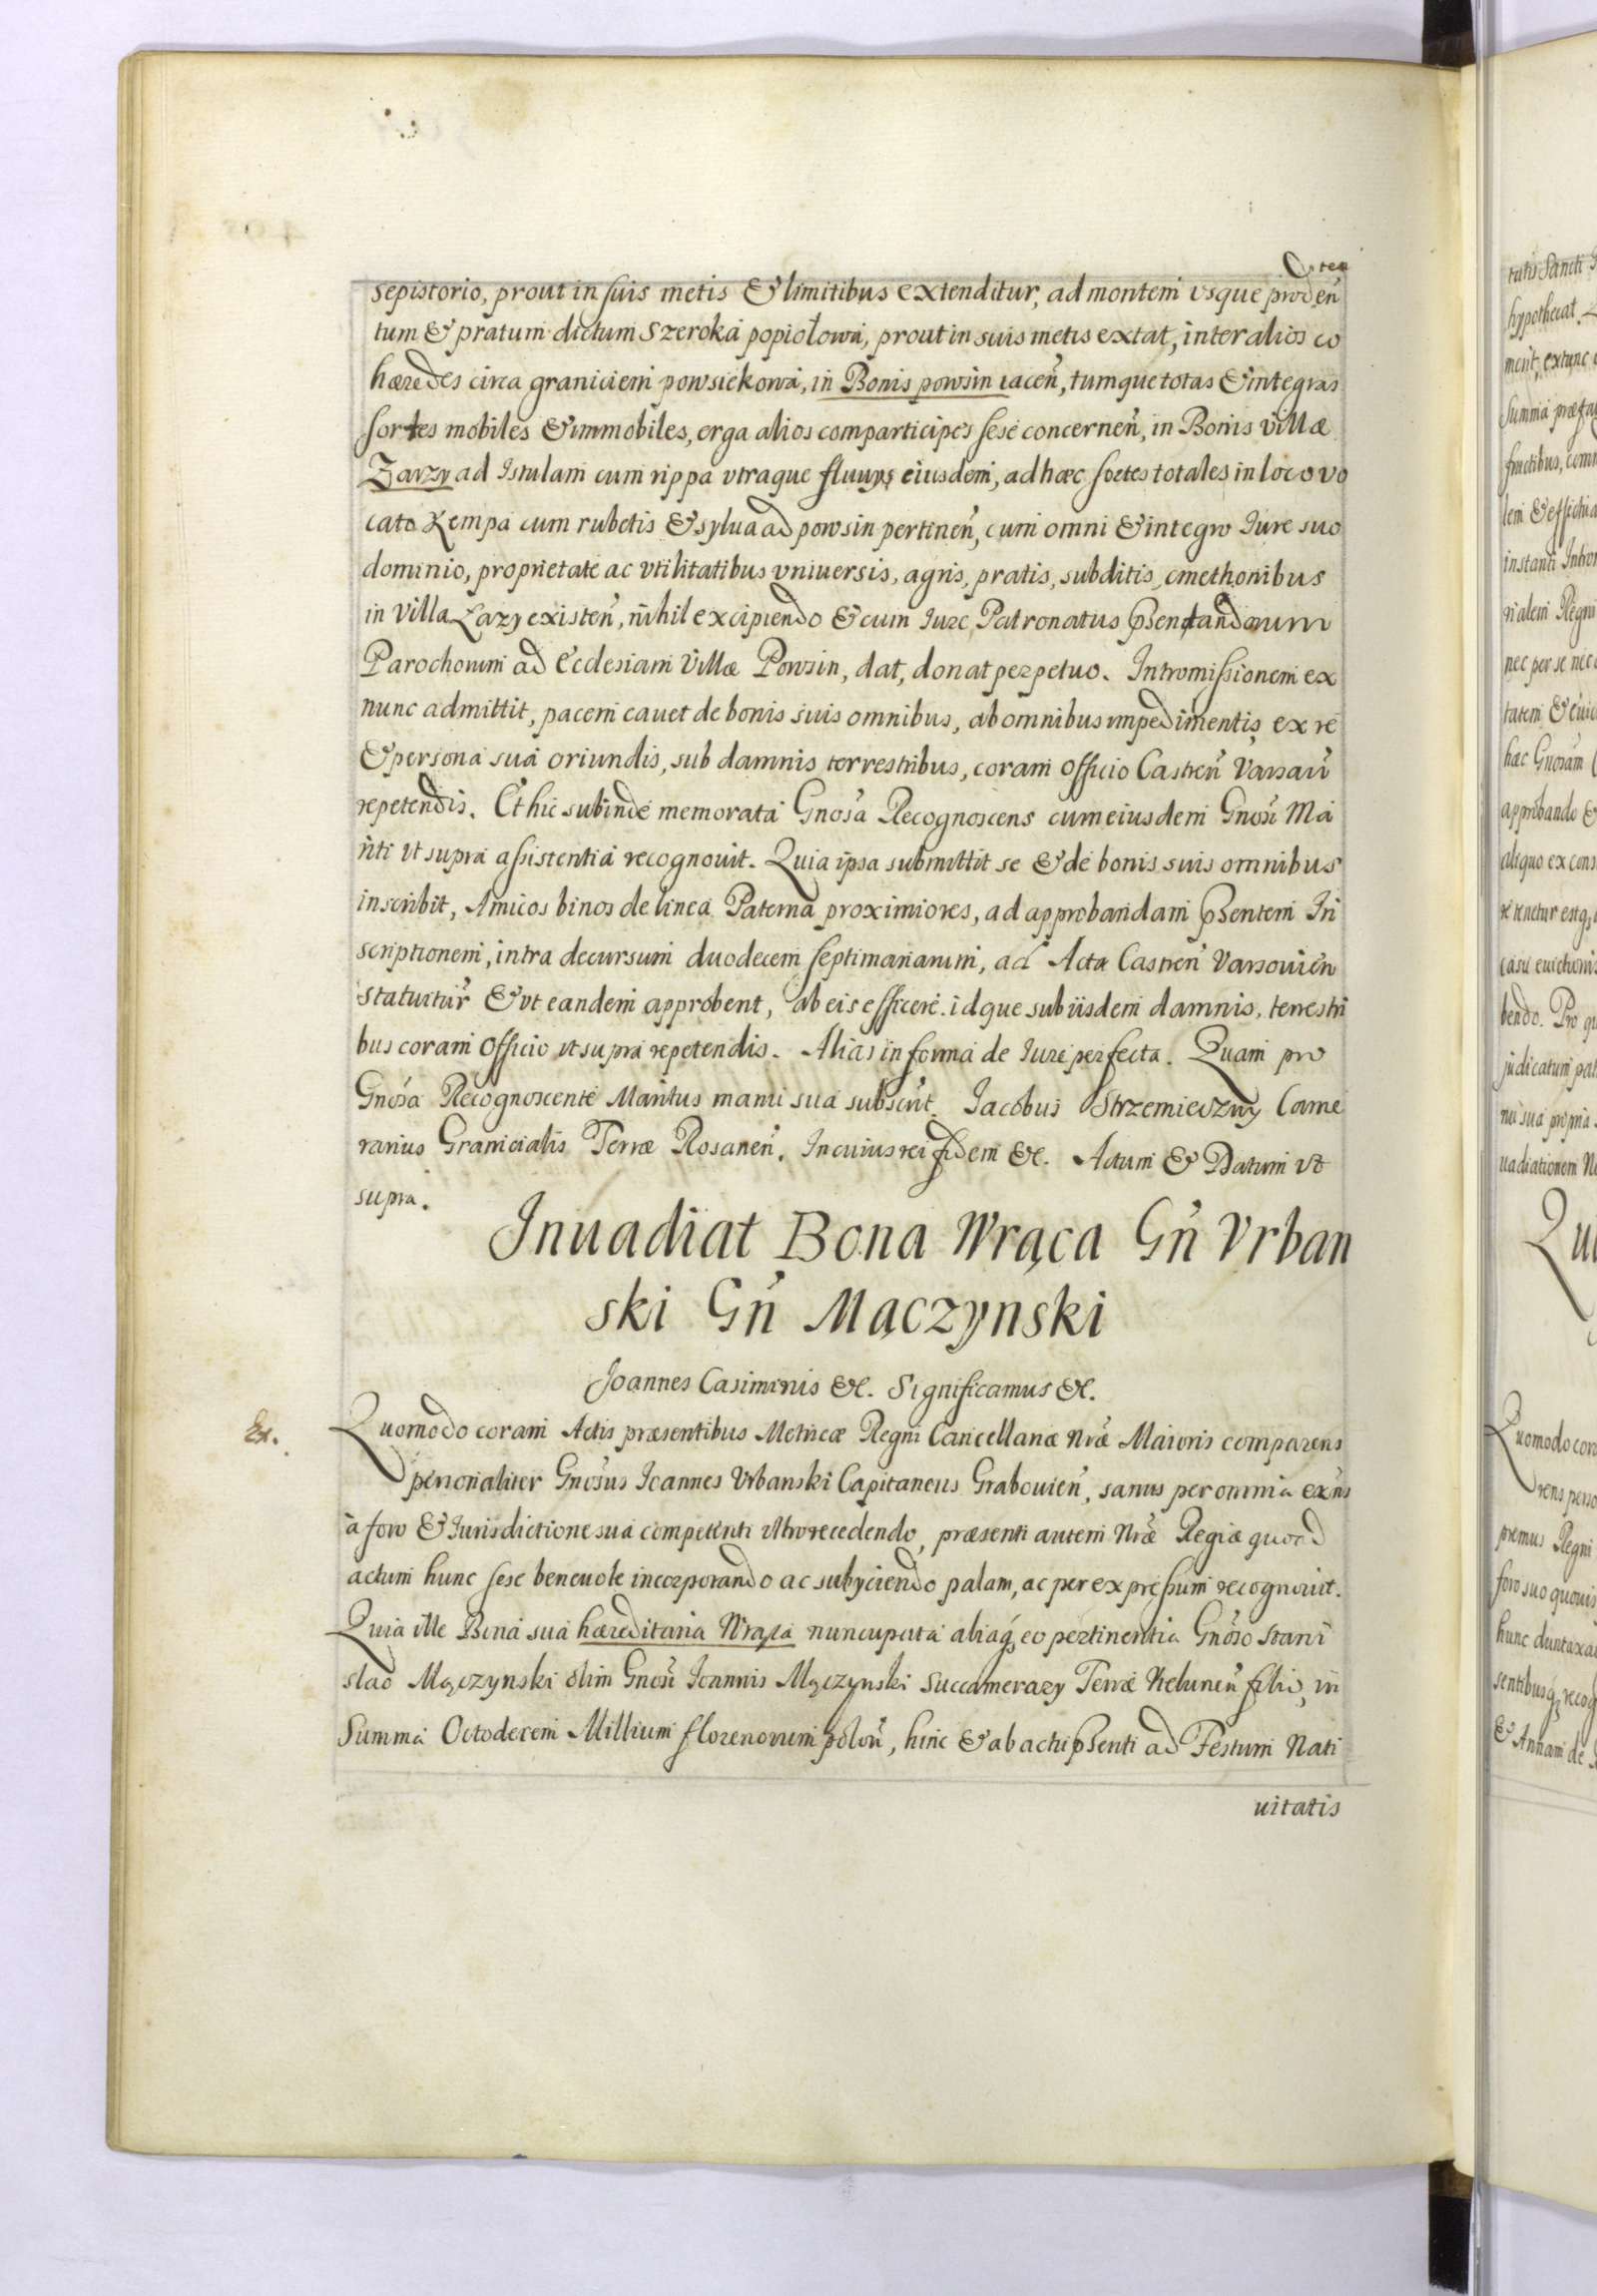 sepistorio, prout in suis metis & limitibus extenditur, ad montem vsque prodeñ
tum & pratum dictum Szeroka popiołowa, prout in suis metis extat, inter alios co
hæredes circa graniciem powsiekowa, in Bonis powsin iaceñ, tumque totas & integras
sortes mobiles & immobiles, erga alios comparticipes sese concerneñ, in Bonis villæ
Zarzy ad Istulam cum rippa vtraque fluuys eiusdem, ad hæc sortes totales in loco vo
cato Kempa cum rubetis & sylua ad powsin pertineñ, cum omni & integro Iure suo
dominio, proprietate ac vtilitatibus vniuersis, agris, pratis, subditis, cmethonibus
in villa Łazy existeñ, nihil excipiendo & cum Iure Patronatus pſentandorum
Parochorum ad Ecclesiam Villæ Powsin, dat, donat perpetuo. Intromissionem ex
nunc admittit, pacem cauet de bonis suis omnibus, ab omnibus impedimentis ex re
& persona sua oriundis, sub damnis terrestribus, coram Officio Castreñ Varsauñ
repetendis. Et hic subinde memorata Gnosa Recognoscens cum eiusdem Gnosi Ma
riti vt supra assistentia recognouit. Quia ipsa submittit se & de bonis suis omnibus
inscribit, Amicos binos de linea Paterna proximiores, ad approbandam pſentem In
scriptionem, intra decursum duodecem septimanarum, ad Acta Castreñ Varsouieñ
statuitur & vt eandem approbent, ab eis efficere. idque sub iisdem damnis, terrestri
bus coram Officio vt supra repetendis. Alias in forma de Iure perfecta. Quam pro
Gnosa Recognoscente Maritus manu sua subscrit. Iacobus Strzemieczny Came
rarius Granicialis Terræ Rosaneñ. In cuius rei fidem &c. Actum & Datum vt
supra.
Inuadiat Bona Wrąca Gñ Vrban
ski Gñ Mączynski
Joannes Casimirus &c. Significamus &c.
Ex.
Quomodo coram Actis præsentibus Metricæ Regni Cancellariæ Nræ Maioris comparens
personaliter Gnosus Ioannes Vrbanski Capitaneus Grabouieñ, sanus per omnia exñs
a foro & Iurisdictione sua competenti vltro recedendo, præsenti autem Nræ Regiæ quoad
actum hunc sese beneuole incorporando ac subyciendo palam, ac per expressum recognouit.
Quia ille Bona sua hæreditaria Wrąca nuncupata aliaq, eo pertinentia Gnoso Stani
slao Mączynski olim Gnosi Ioannis Mączynski Succamerary Terræ Wieluneñ filio, in
Summa Octodecem Millium florenorum poloñ, hinc & ab actu pſenti ad Festum Nati
uitatis